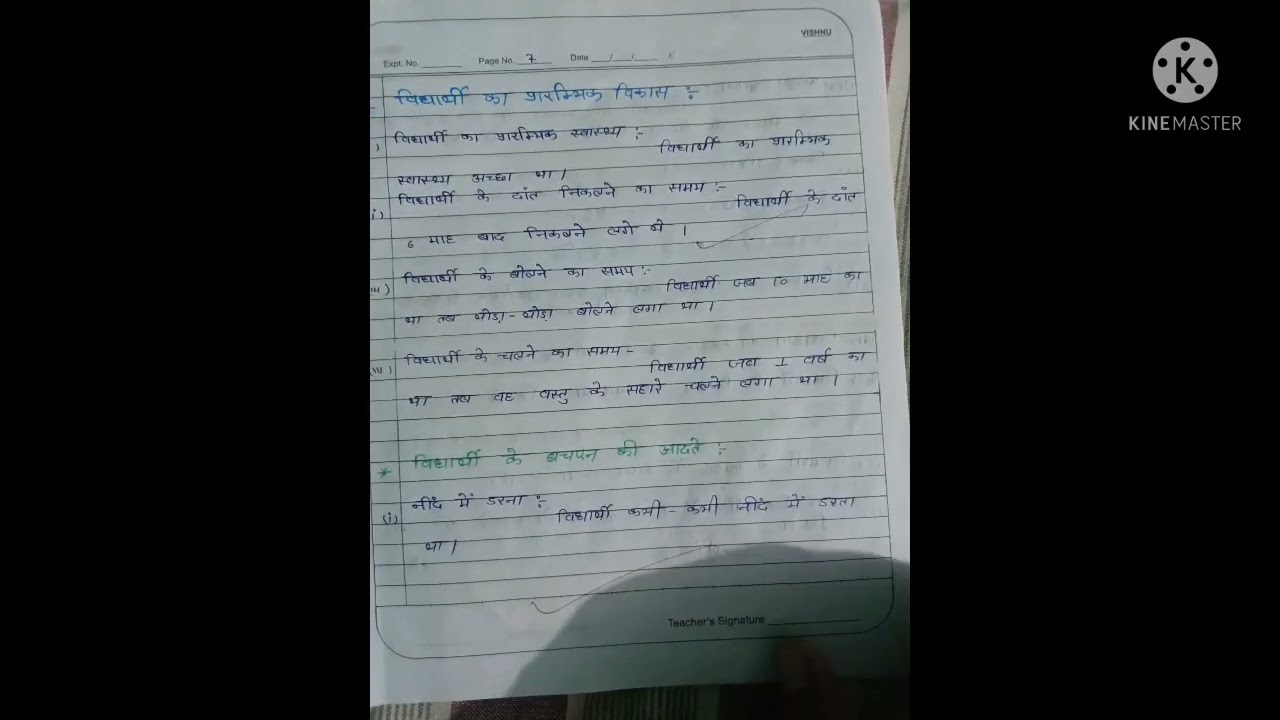 VISHNU
Expt. No. ______ Page No. 7 Date __/__/__
विद्यार्थी का प्रारम्भिक विकास :-
) विद्यार्थी का प्रारम्भिक स्वास्थ्य :-
विद्यार्थी का प्रारम्भिक
स्वास्थ्य अच्छा था।
i) विद्यार्थी के दांत निकलने का समय :-
विद्यार्थी के दांत
6 माह बाद निकलने लगे थे।
iii) विद्यार्थी के बोलने का समय :-
विद्यार्थी जब 10 माह का
था तब थोड़ा-थोड़ा बोलने लगा था।
iv) विद्यार्थी के चलने का समय -
विद्यार्थी जब 1 वर्ष का
था तब वह वस्तु के सहारे चलने लगा था।
* विद्यार्थी के बचपन की आदते :-
(i) नींद में डरना :-
विद्यार्थी कभी-कभी नींद में डरता
था।
Teacher's Signature ______
K
KINEMASTER